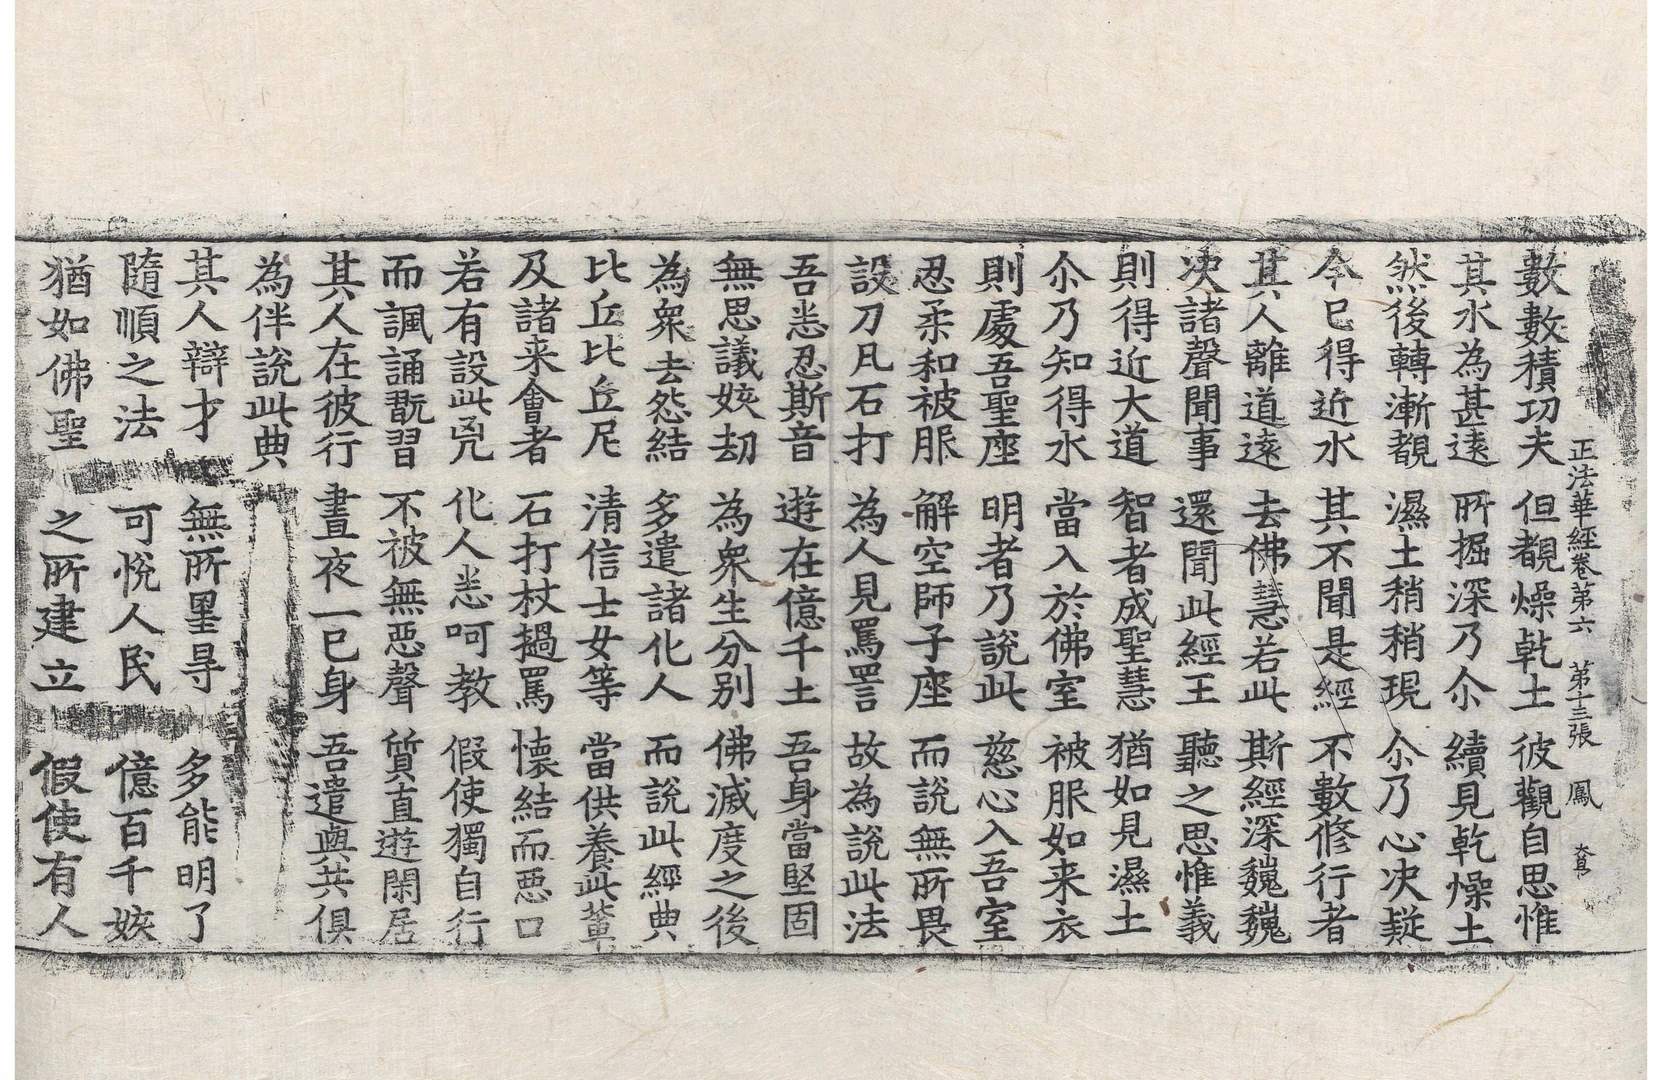 正法華經卷第六 第十三張 鳳
數數積功夫 但覩燥乹土 彼觀自思惟
其水為甚遠 所掘深乃尒 續見乾燥土
然後轉漸覩 濕土稍稍現 尒乃心决疑
今已得近水 其不聞是經 不數修行者
其人離道遠 去佛慧若此 斯經深巍巍
决諸聲聞事 還聞此經王 聽之思惟義
則得近大道 智者成聖慧 猶如見濕土
尒乃知得水 當入於佛室 被服如来衣
則處吾聖座 明者乃說此 慈心入吾室
忍柔和被服 解空師子座 而說無所畏
設刀瓦石打 為人見罵詈 故為說此法
吾悉忍斯音 遊在億千土 吾身當堅固
無思議姟劫 為衆生分別 佛滅度之後
為衆去怨結 多遣諸化人 而說此經典
比丘比丘尼 清信士女等 當供養此輩
及諸来會者 石打杖撾罵 懷結而惡口
若有設此兇 化人悉呵教 假使獨自行
而諷誦翫習 不被無惡聲 質直遊閑居
其人在彼行 晝夜一已身 吾遣與共俱
為伴說此典
其人辯才 無所罣㝵 多能明了
隨順之法 可悅人民 億百千姟
猶如佛聖 之所建立 假使有人